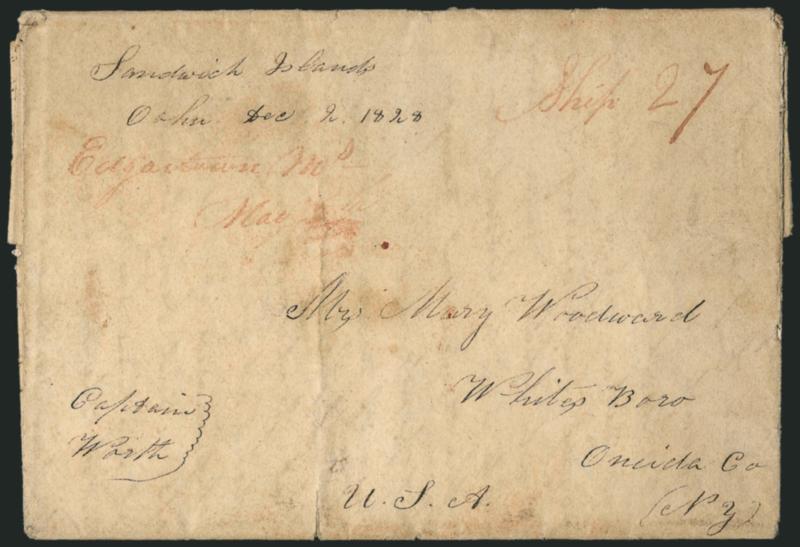 Sandwich Islands
Oahu Dec 2. 1828
Ship 27
Edgartown Ms
May
Mrs Mary Woodward
Whites Boro
Oneida Co
(N Y)
U. S. A.
Captain
Worth